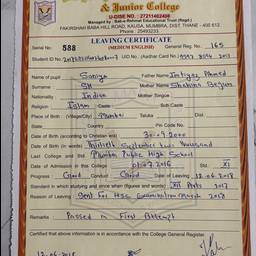 & Junior College
U-DISE NO.: 27211402408
Managed by : Sab-e-Rehmat Educational Trust (Regd.)
FAKIRSHAH BABA HILL ROAD, KAUSA, MUMBRA, DIST. THANE - 400 612.
Phone : 25493233
LEAVING CERTIFICATE
Serial No: 588 (MEDIUM ENGLISH) General Reg. No.: 165
Student ID No. U.I.D No. (Aadhar Card No.)
Name of pupil Saniya Father Name Imtiyaz Ahmed
Surname SK Mother Name Shahin Begum
Nationality Indian Mother Tongue
Religion Islam Caste Sub Caste
Place of Birth (Village/City) Mumbai Taluka Dist.
State Country Pin Code No.
Date of Birth (according to Christian era) 30-09-2000
Date of Birth (in words) Thirtieth September two thousand
Last College and Std. Mumbra Public High School
Date of Admission in this College 01-07-2016 Std. XI
Progress Good Conduct Good Date of Leaving 12.06.2018
Standard in which studying and since when (figures and words) XII 2017
Reason of Leaving Sent For HSC Examination March 2018
Remarks Passed in First Attempt
Certified that above information is in accordance with the College General Register.
12-06-2018